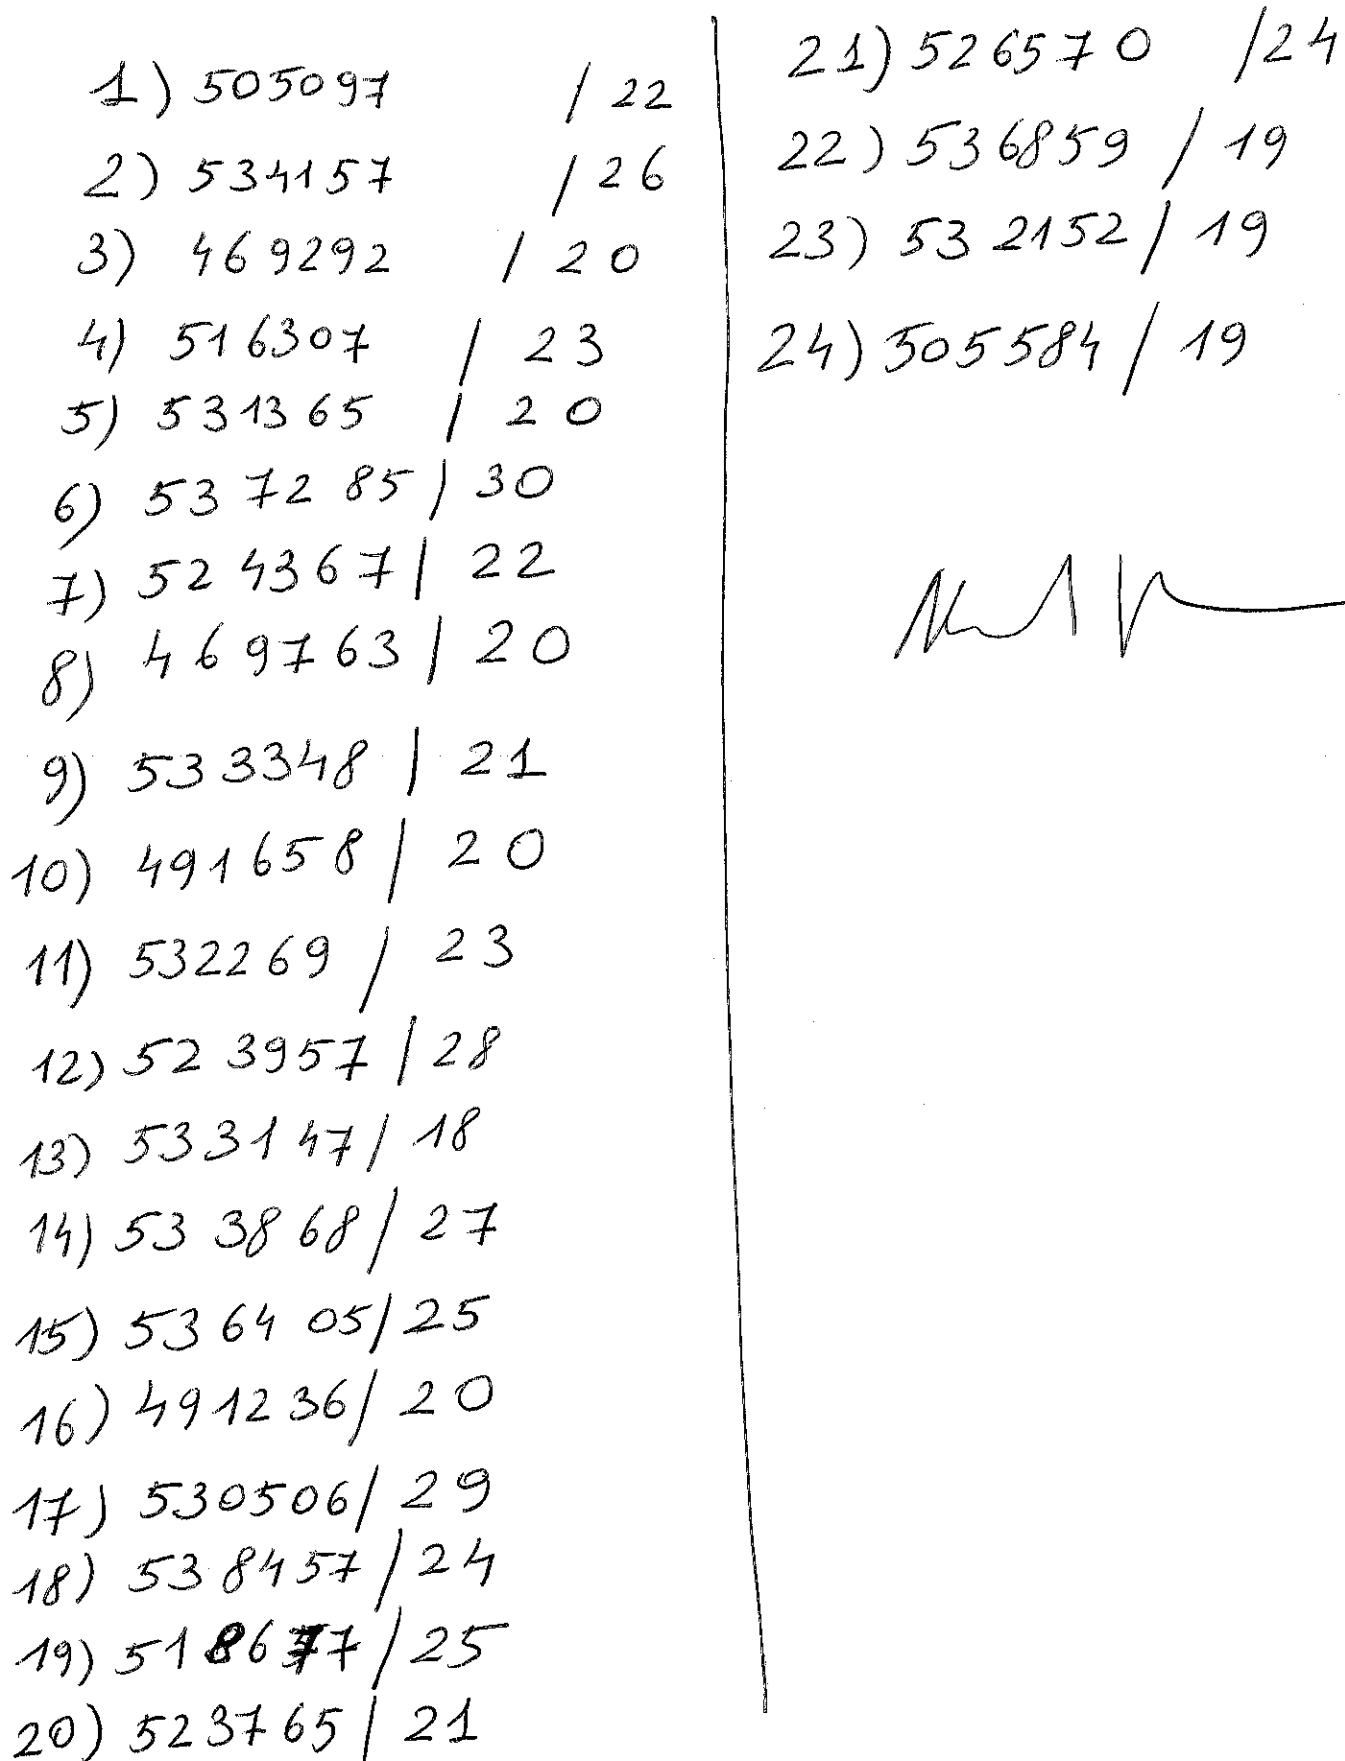 1) 505097 / 22
2) 534157 / 26
3) 469292 / 20
4) 516307 / 23
5) 531365 / 20
6) 537285 / 30
7) 524367 / 22
8) 469763 / 20
9) 533348 / 21
10) 491658 / 20
11) 532269 / 23
12) 523957 / 28
13) 533147 / 18
14) 533868 / 27
15) 536405 / 25
16) 491236 / 20
17) 530506 / 29
18) 538457 / 24
19) 518677 / 25
20) 523765 / 21
21) 526570 / 24
22) 536859 / 19
23) 532152 / 19
24) 505584 / 19